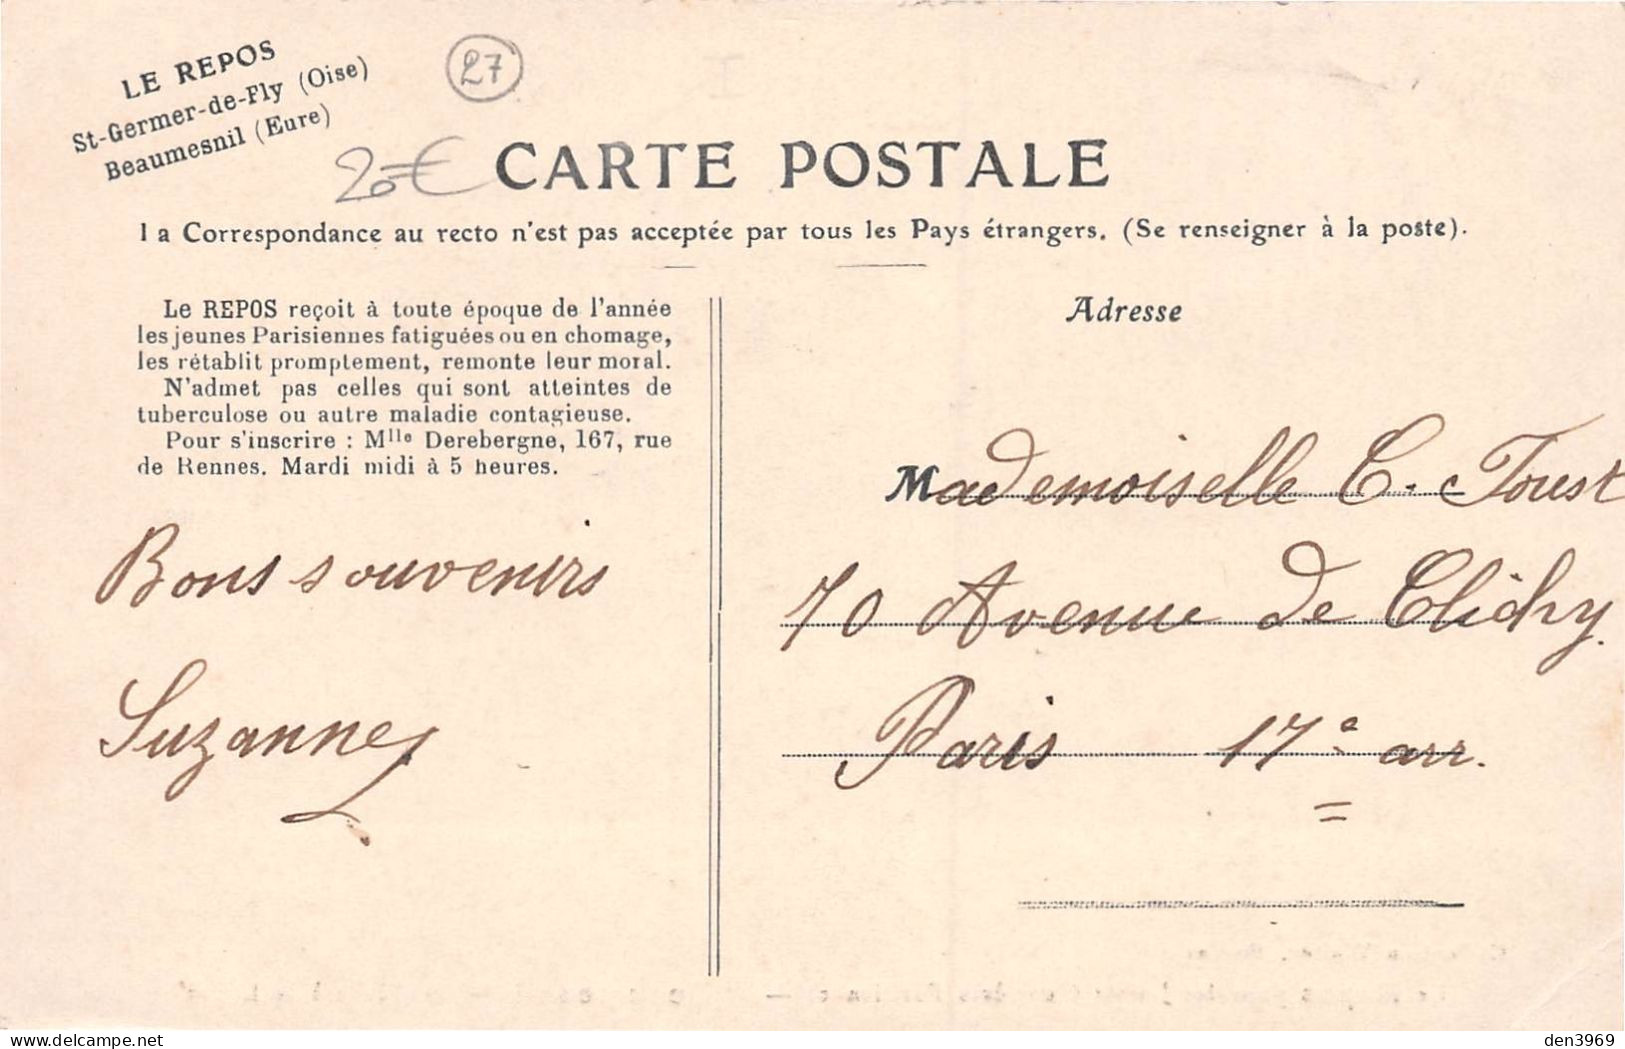 LE REPOS
St-Germer-de-Fly (Oise)
Beaumesnil (Eure)
27
20€
CARTE POSTALE
La Correspondance au recto n'est pas acceptée par tous les Pays étrangers. (Se renseigner à la poste).
Le REPOS reçoit à toute époque de l'année
les jeunes Parisiennes fatiguées ou en chomage,
les rétablit promptement, remonte leur moral.
N'admet pas celles qui sont atteintes de
tuberculose ou autre maladie contagieuse.
Pour s'inscrire : Mlle Derebergne, 167, rue
de Rennes. Mardi midi à 5 heures.
Bons souvenirs
Suzanne
Adresse
Mademoiselle C. Toust
70 Avenue de Clichy
Paris 17e arr.
den3969